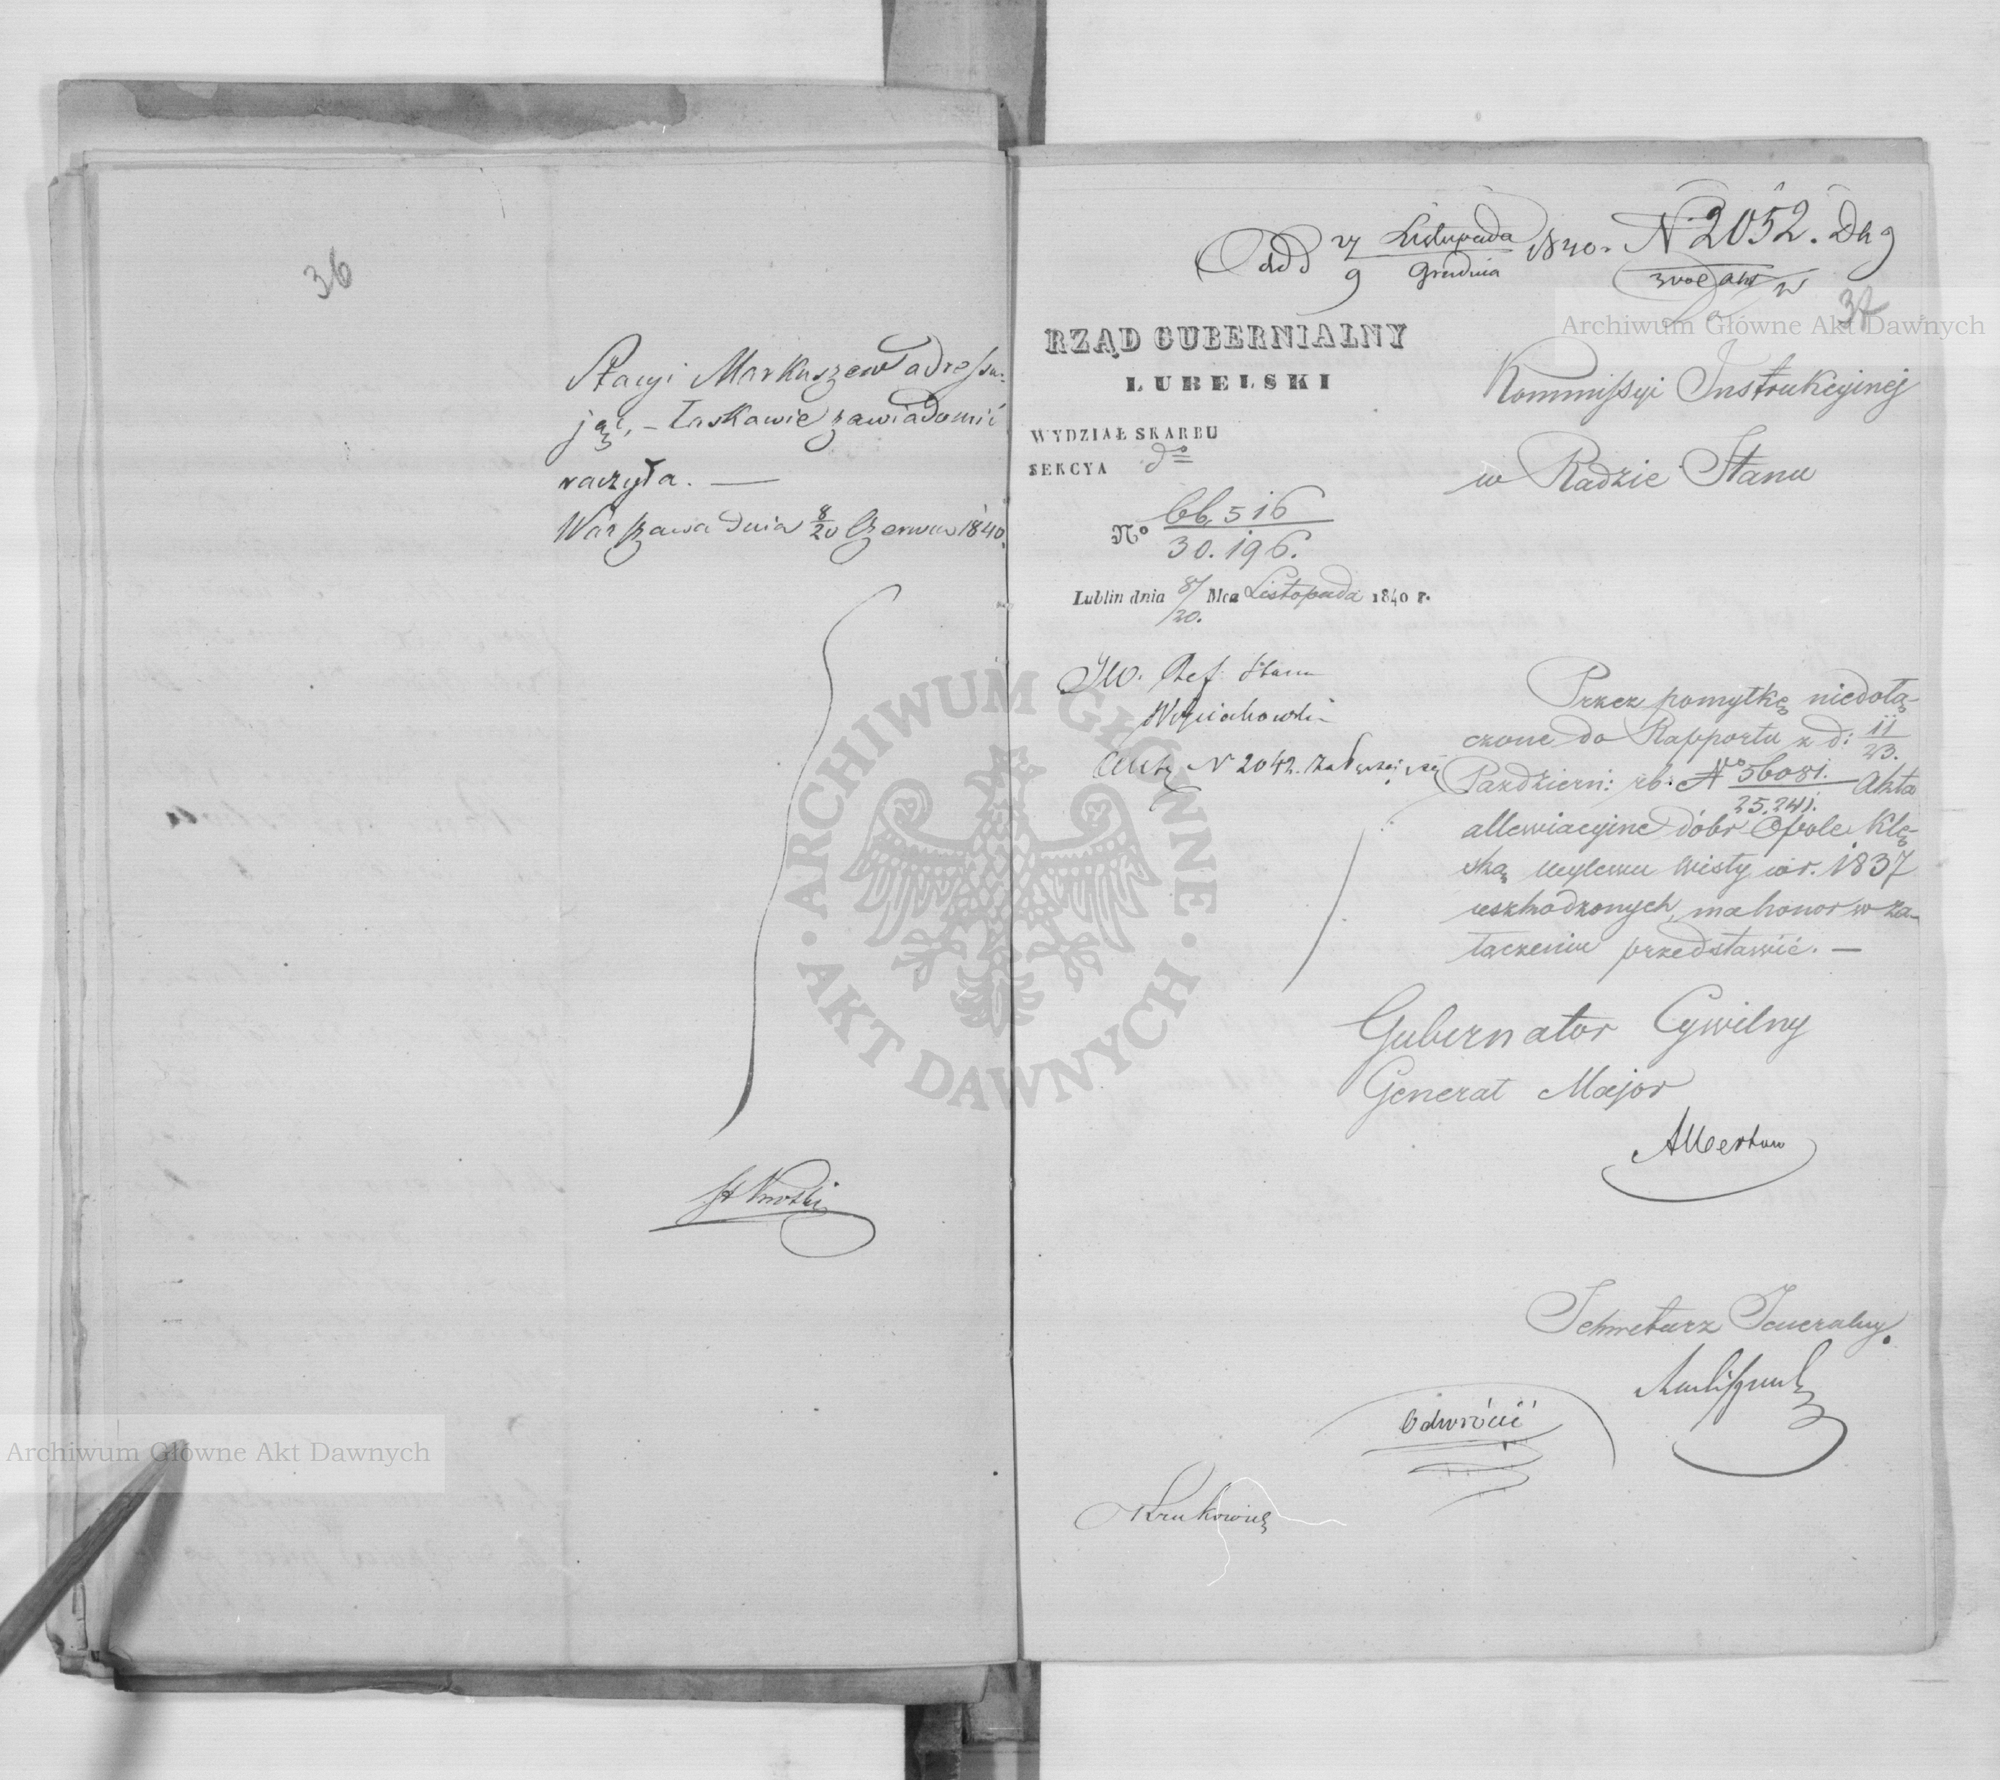 36
Stacyi Markuszew adressu-
jąc, – łaskawie zawiadomić
raczyła. —
Warszawa dnia 8/20 Czerwca 1840.
Odd 27 Listopada / 9 Grudnia 1840 r. N 2052.
37
RZĄD GUBERNIALNY
LUBELSKI
WYDZIAŁ SKARBU
SEKCYA
No 66,516 / 30.196.
Lublin dnia 8/20. Mca Listopada 1840 r.
Kommissyi Instrukcyinej
w Radzie Stanu
JW. Ref. Stanu
Woyciechowski
N 2042.
Przez pomyłkę niedołą-
czone do Rapportu z d: 11/23.
Pazdziern: rb. No 56081. / 25,241. Akta
allewiacyine dóbr Opole Klę-
ską wylewu Wisły w r. 1837
uszkodzonych, ma honor w za-
łączeniu przedstawić. —
Gubernator Cywilny
Generał Major
Albertow
Sekretarz Jeneralny.
Odwrócić
Krukowicz
Archiwum Główne Akt Dawnych
Archiwum Główne Akt Dawnych
ARCHIWUM GŁÓWNE
AKT DAWNYCH